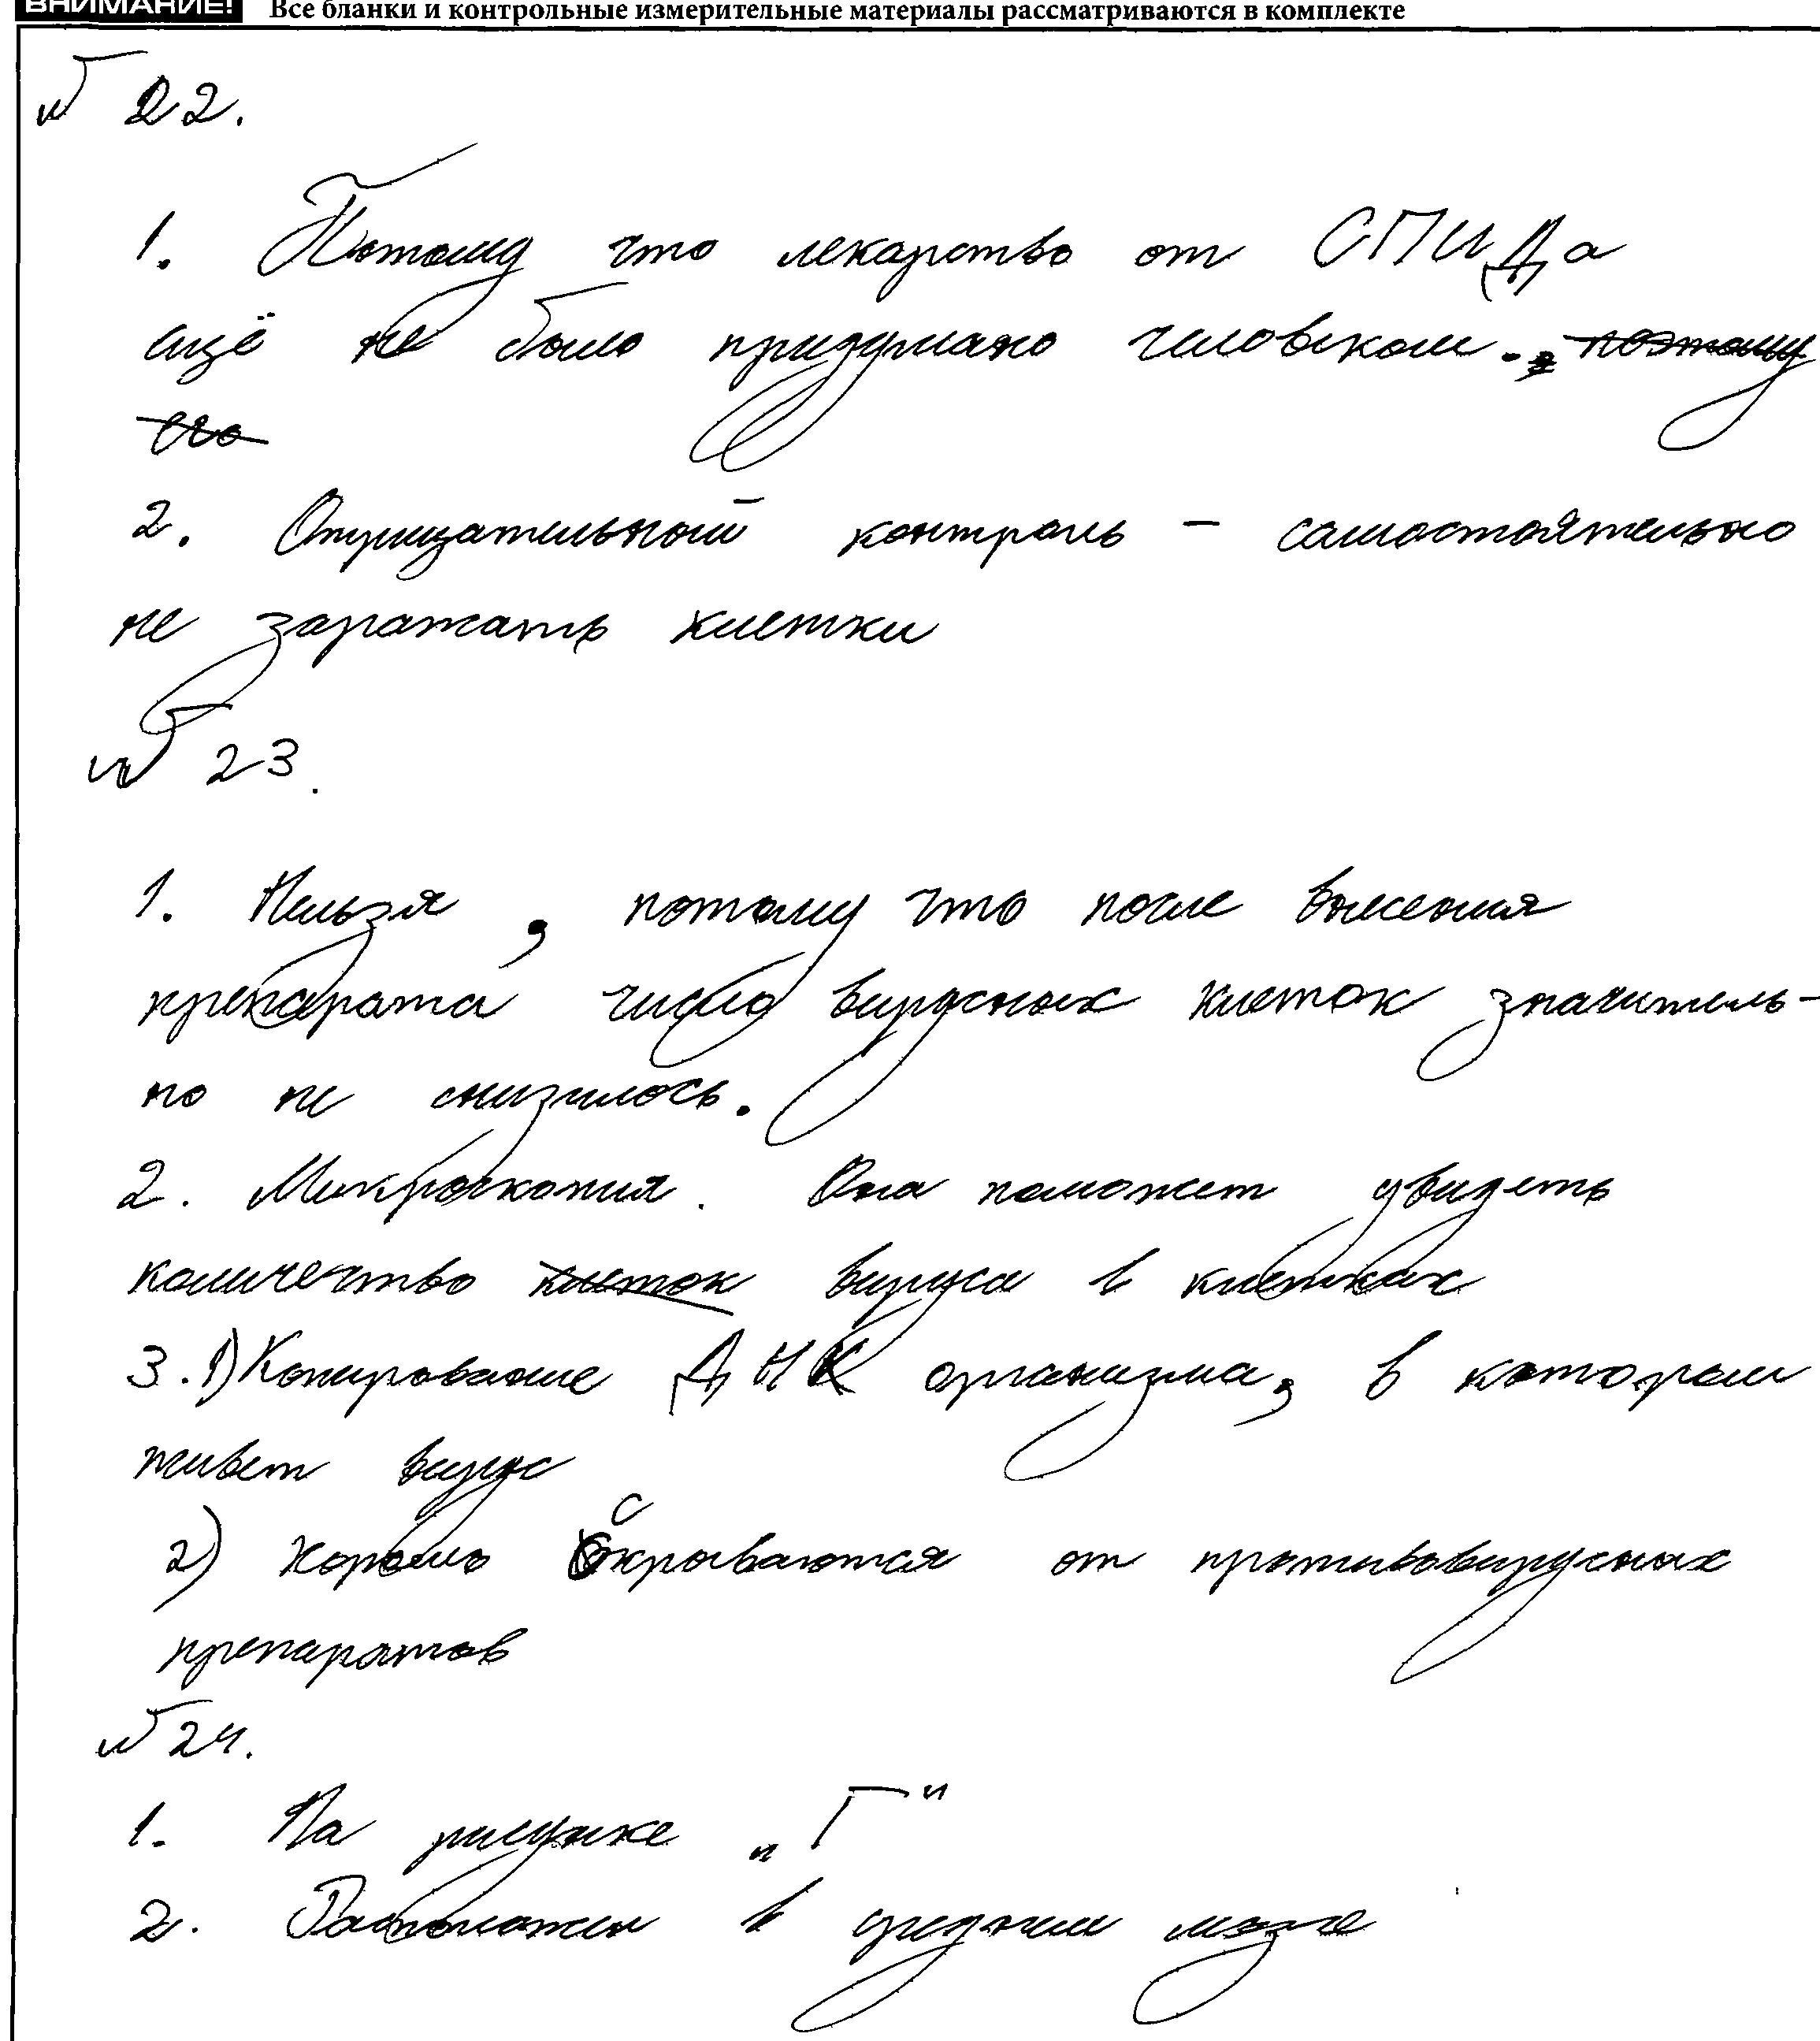 ВНИМАНИЕ! Все бланки и контрольные измерительные материалы рассматриваются в комплекте
№ 22.
1. Потому что лекарство от СПИДа
ещё не было придумано человеком. поэтому
его
2. Отрицательный контроль – самостоятельно
не заражать клетки
№ 23.
1. Нельзя, потому что после внесения
препарата число вирусных клеток значитель-
но не снизилось.
2. Микроскопия. Она поможет увидеть
количество клеток вируса в клетках
3. 1) Копирование ДНК организма, в котором
живет вирус
2) Хорошо скрываются от противовирусных
препаратов
№ 24.
1. На рисунке "Г"
2. Расположен в среднем мозге